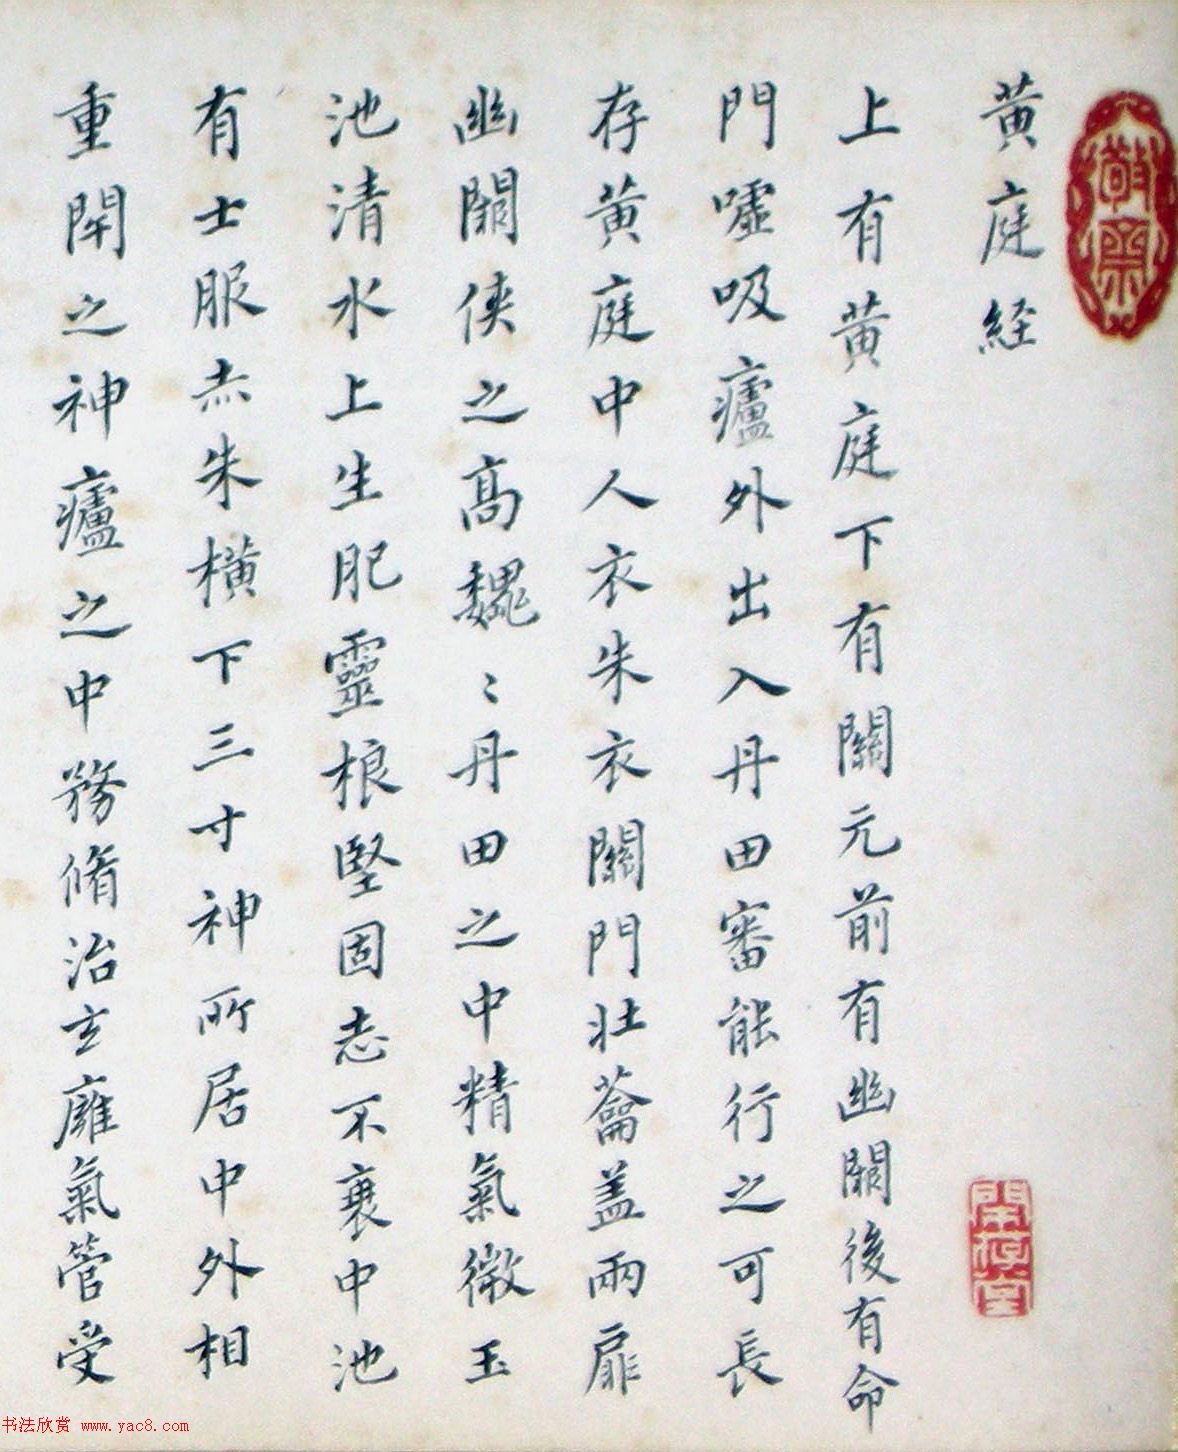 黄庭経
上有黄庭下有關元前有幽關後有命
門嘘吸廬外出入丹田審能行之可長
存黄庭中人衣朱衣關門壮蘥盖兩扉
幽關俠之髙魏〻丹田之中精氣微玉
池清水上生肥靈根堅固志不衰中池
有士服赤朱横下三寸神所居中外相
重閇之神廬之中務脩治玄廱氣管受
閒存堂
书法欣赏 www.yac8.com